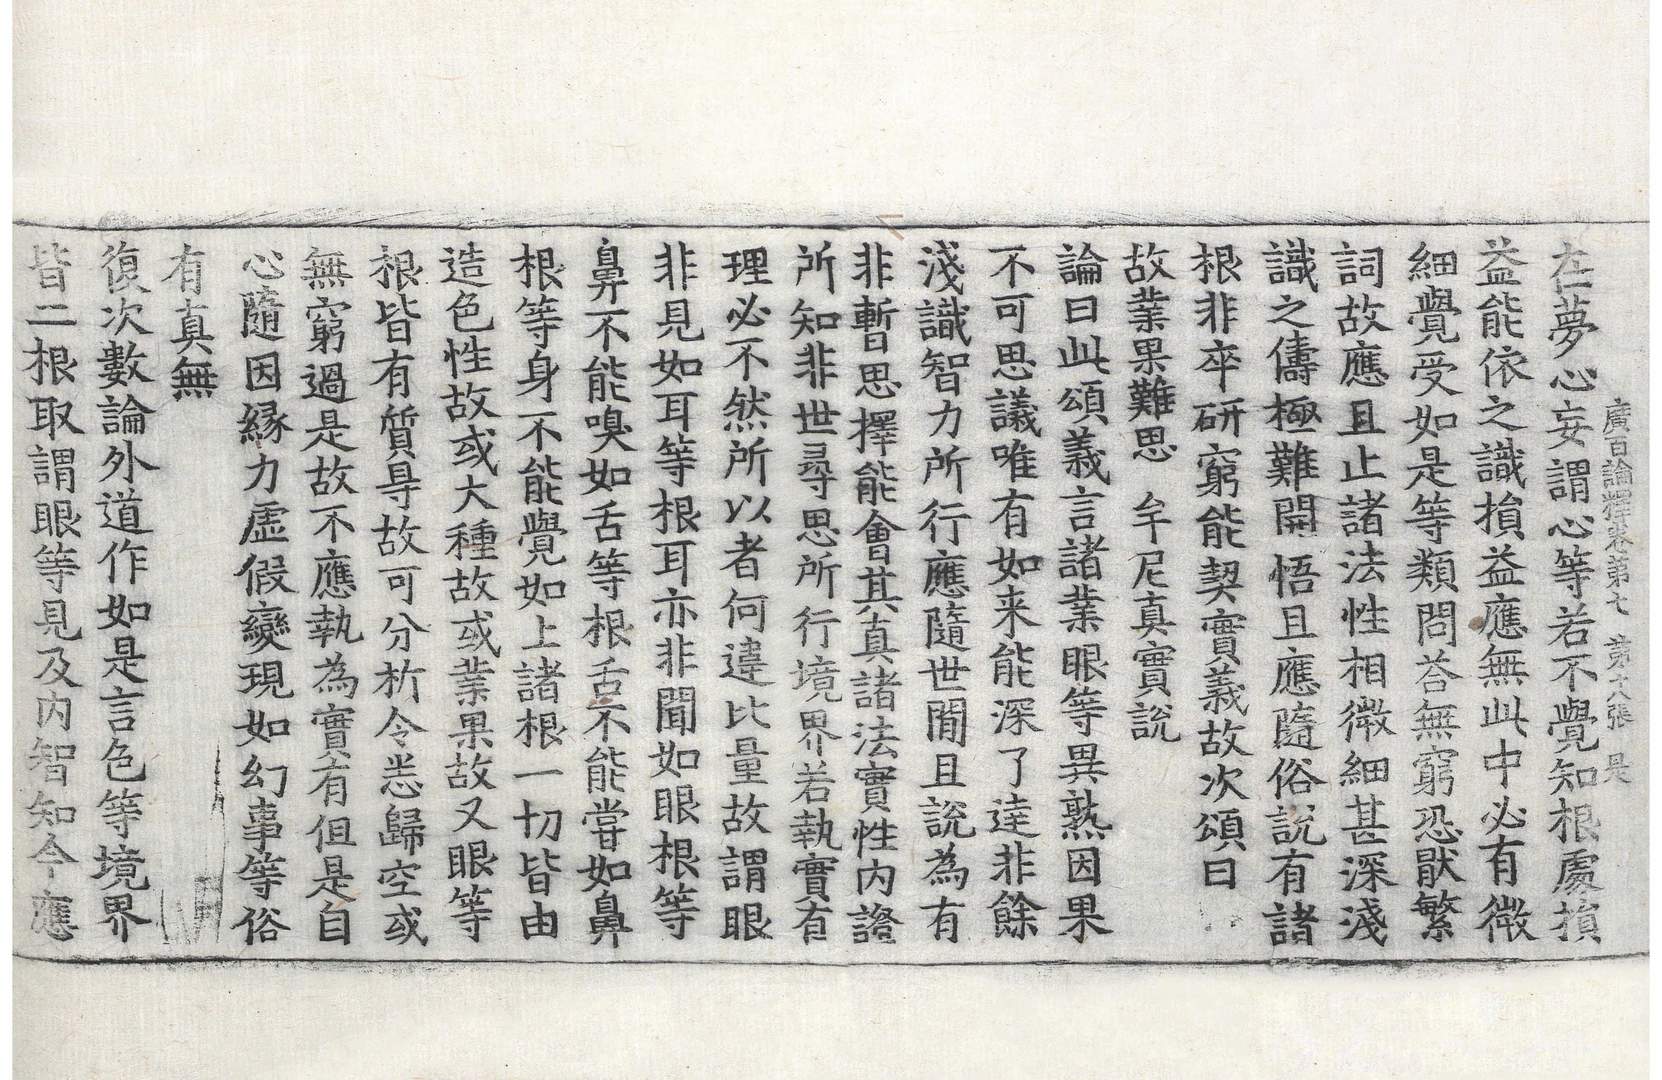 廣百論釋卷第七 第十八張 是
在夢心妄謂心等若不覺知根處損
益能依之識損益應無此中必有微
細覺受如是等類問荅無窮恐猒繁
詞故應且止諸法性相微細甚深淺
識之儔極難開悟且應隨俗說有諸
根非卒研窮能契實義故次頌曰
故業果難思 牟尼真實說
論曰此頌義言諸業眼等異熟因果
不可思議唯有如来能深了達非餘
淺識智力所行應隨世間且說為有
非暫思擇能會其真諸法實性內證
所知非世尋思所行境界若執實有
理必不然所以者何違比量故謂眼
非見如耳等根耳亦非聞如眼根等
鼻不能嗅如舌等根舌不能嘗如鼻
根等身不能覺如上諸根一切皆由
造色性故或大種故或業果故又眼等
根皆有質㝵故可分析令悉歸空或
無窮過是故不應執為實有但是自
心隨因緣力虛假變現如幻事等俗
有真無
復次數論外道作如是言色等境界
皆二根取謂眼等見及內智知今應